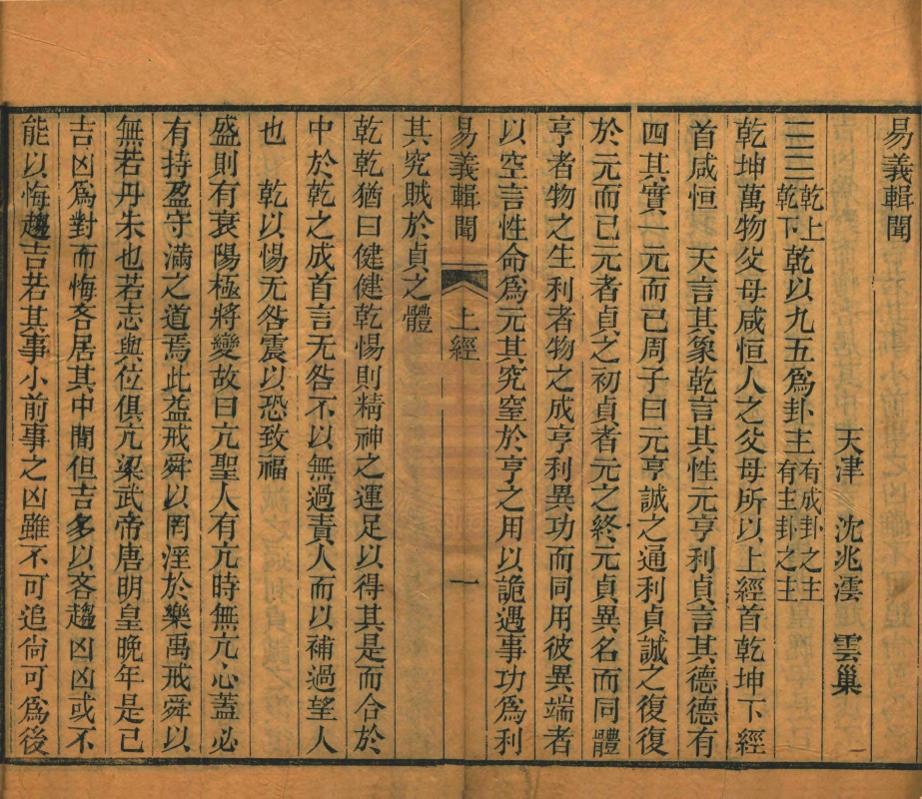 易義輯聞
天津 沈兆澐 雲巢
三三乾上乾下乾以九五爲卦主有成卦之主有主卦之主
乾坤萬物父母咸恒人之父母所以上經首乾坤下經
首咸恒 天言其象乾言其性元亨利貞言其德德有
四其實一元而已周子曰元亨誠之通利貞誠之復復
於元而已元者貞之初貞者元之終元貞異名而同體
亨者物之生利者物之成亨利異功而同用彼異端者
以空言性命爲元其究窒於亨之用以詭遇事功爲利
易義輯聞 上經 一
其究賊於貞之體
乾乾猶曰健健乾惕則精神之運足以得其是而合於
中於乾之成首言无咎不以無過責人而以補過望人
也 乾以惕无咎震以恐致福
盛則有衰陽極將變故曰亢聖人有亢時無亢心蓋必
有持盈守滿之道焉此益戒舜以罔淫於樂禹戒舜以
無若丹朱也若志與位俱亢梁武帝唐明皇晚年是已
吉凶爲對而悔吝居其中間但吉多以吝趨凶凶或不
能以悔趨吉若其事小前事之凶雖不可追尙可爲後